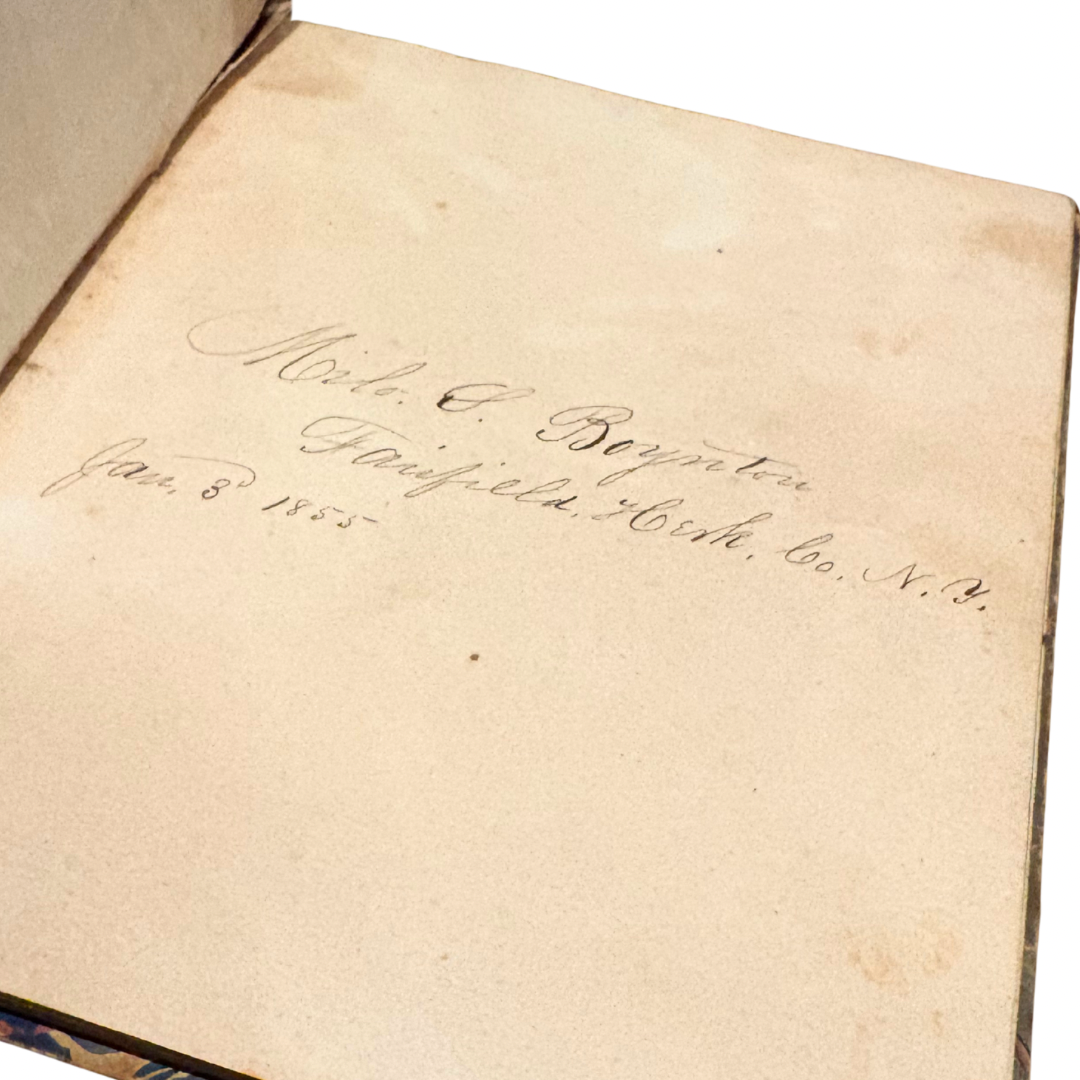 Milo. S. Boynton
Fairfield, Herk. Co. N. Y.
Jan. 3d 1855